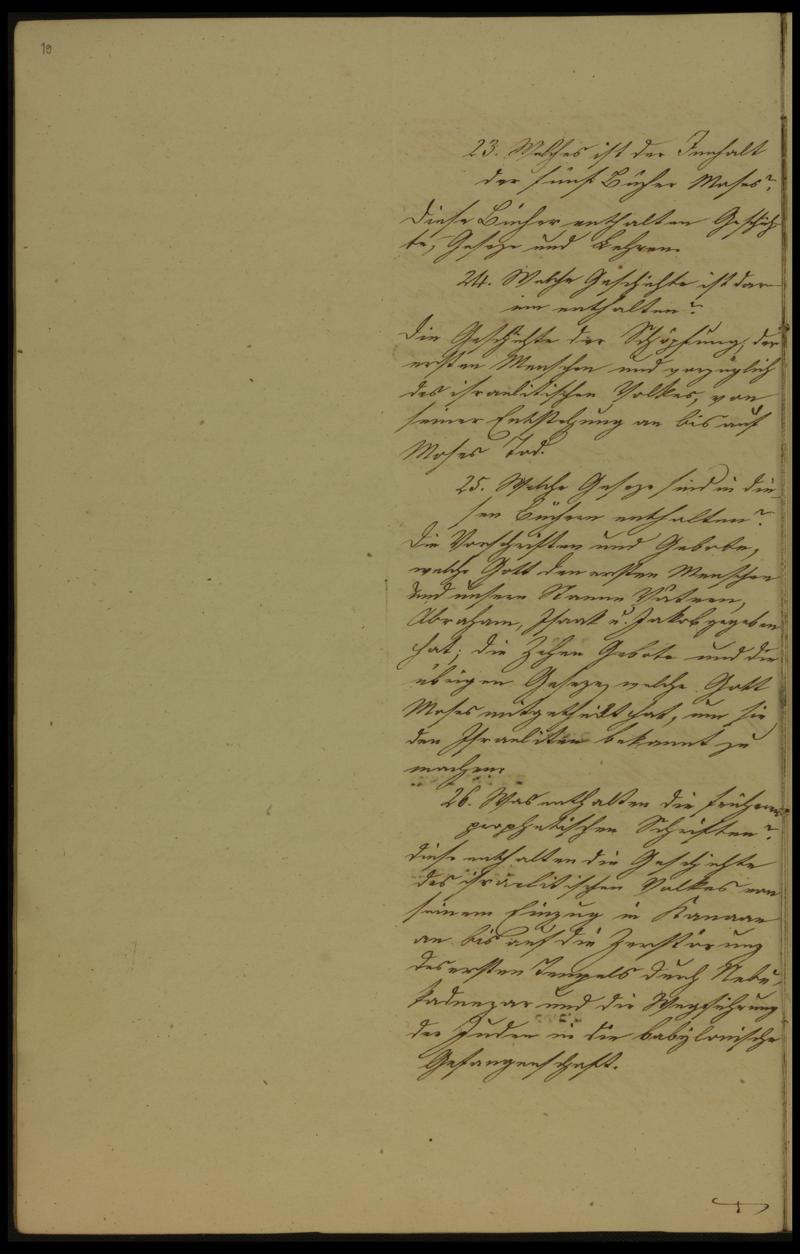 10
23. Welches ist der Innhalt
der fünf Bücher Moses?
Diese Bücher enthalten Geschich-
te, Geseze und Lehren.
24. Welche Geschichte ist dar-
inn enthalten?
Die Geschichte der Schöpfung, der
ersten Menschen und vorzüglich
des israelitischen Volkes, von
seiner Entstehung an bis auf
Moses Tod.
25. Welche Geseze sind in die-
sen Büchern enthalten?
Die Vorschriften und Gebote,
welche Gott den ersten Menschen
und unsern Stamm Vätern,
Abraham, Isaak u. Jakob gegeben
hat; die Zehen Gebote und die
übrigen Geseze, welche Gott
Moses mitgetheilt hat, um sie
den Israeliten bekannt zu
machen.
26. Was enthalten die frühern
prophetischen Schriften?
Diese enthalten die Geschichte
des israelitischen Volkes von
seinem Einzug in Kanaan
an bis auf die Zerstörung
des ersten Tempels durch Nebu-
kadnezar und die Wegführung
der Juden in die babylonische
Gefangenschaft.